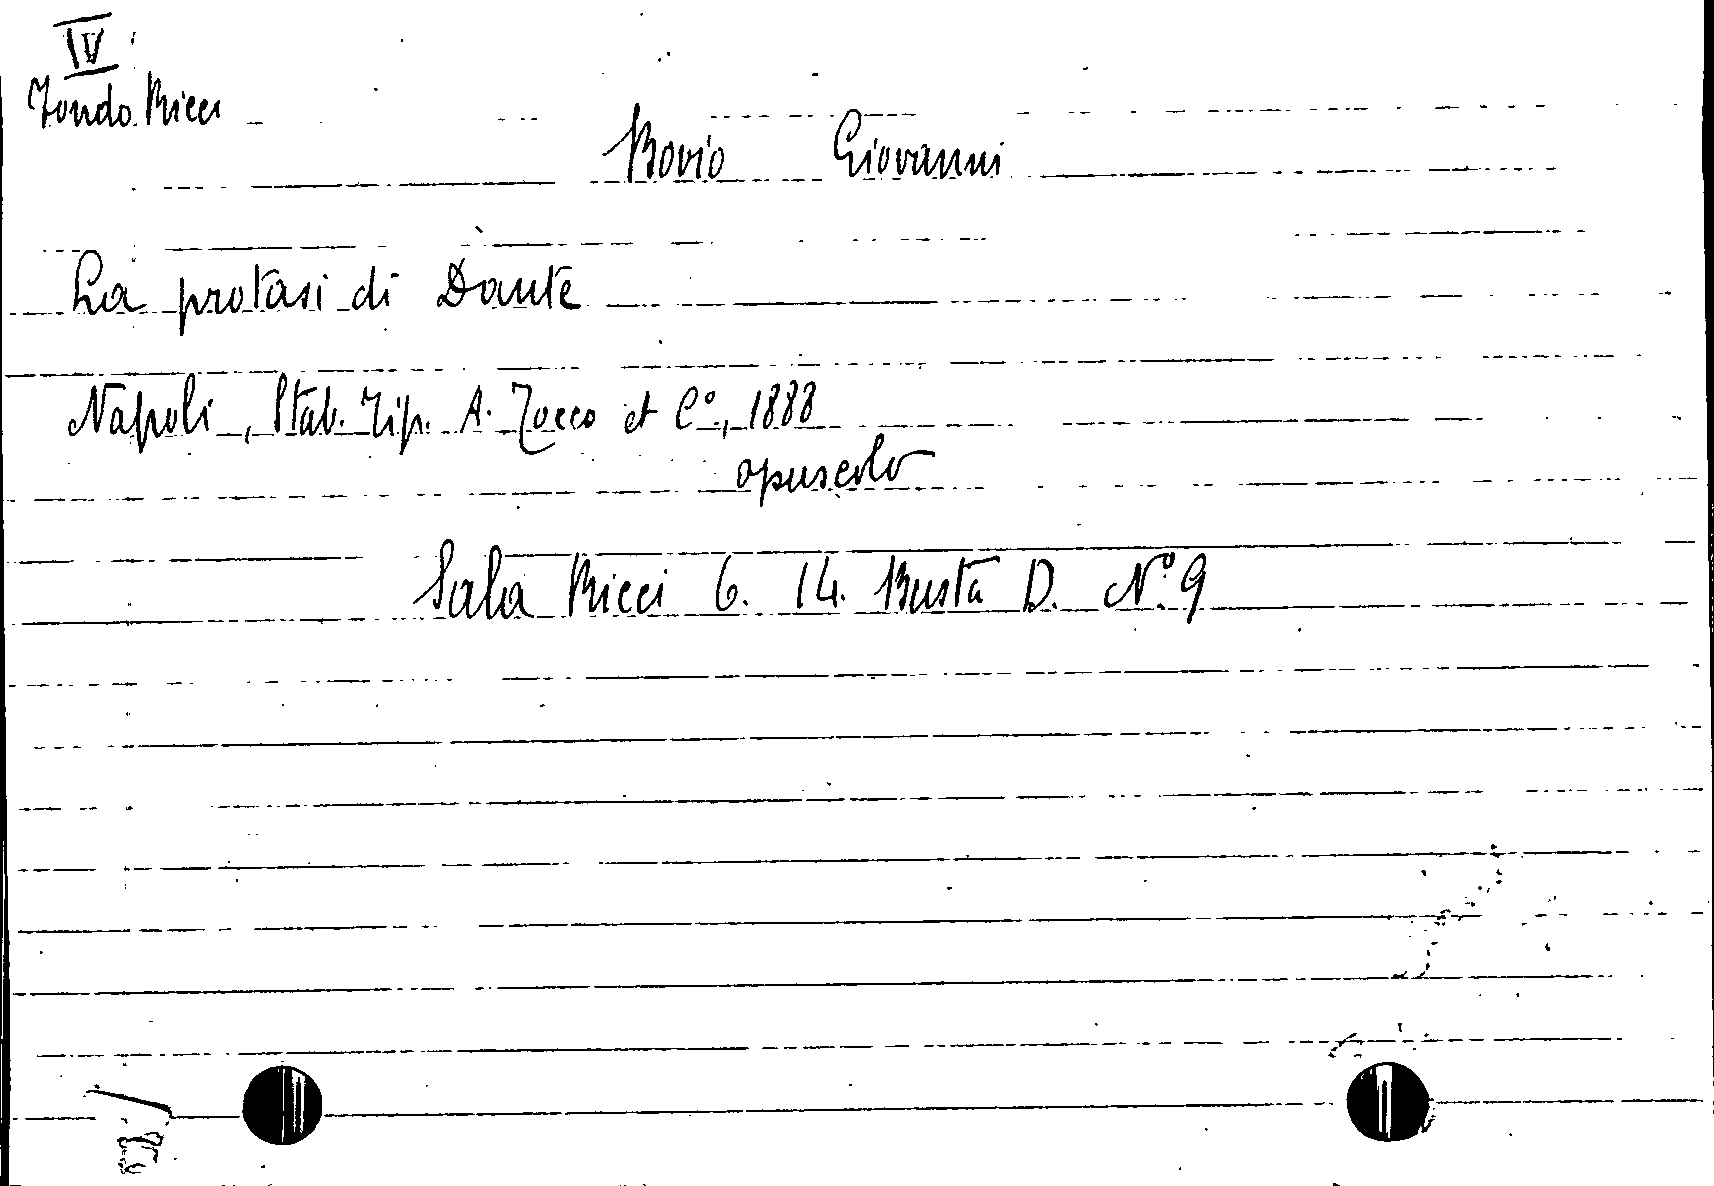 IV
Fondo Ricci
Bovio Giovanni
La protasi di Dante
Napoli, Stab. Tip. A. Tocco et C°., 1888
opuscolo
Sala Ricci 6. 14. Busta D. N°. 9